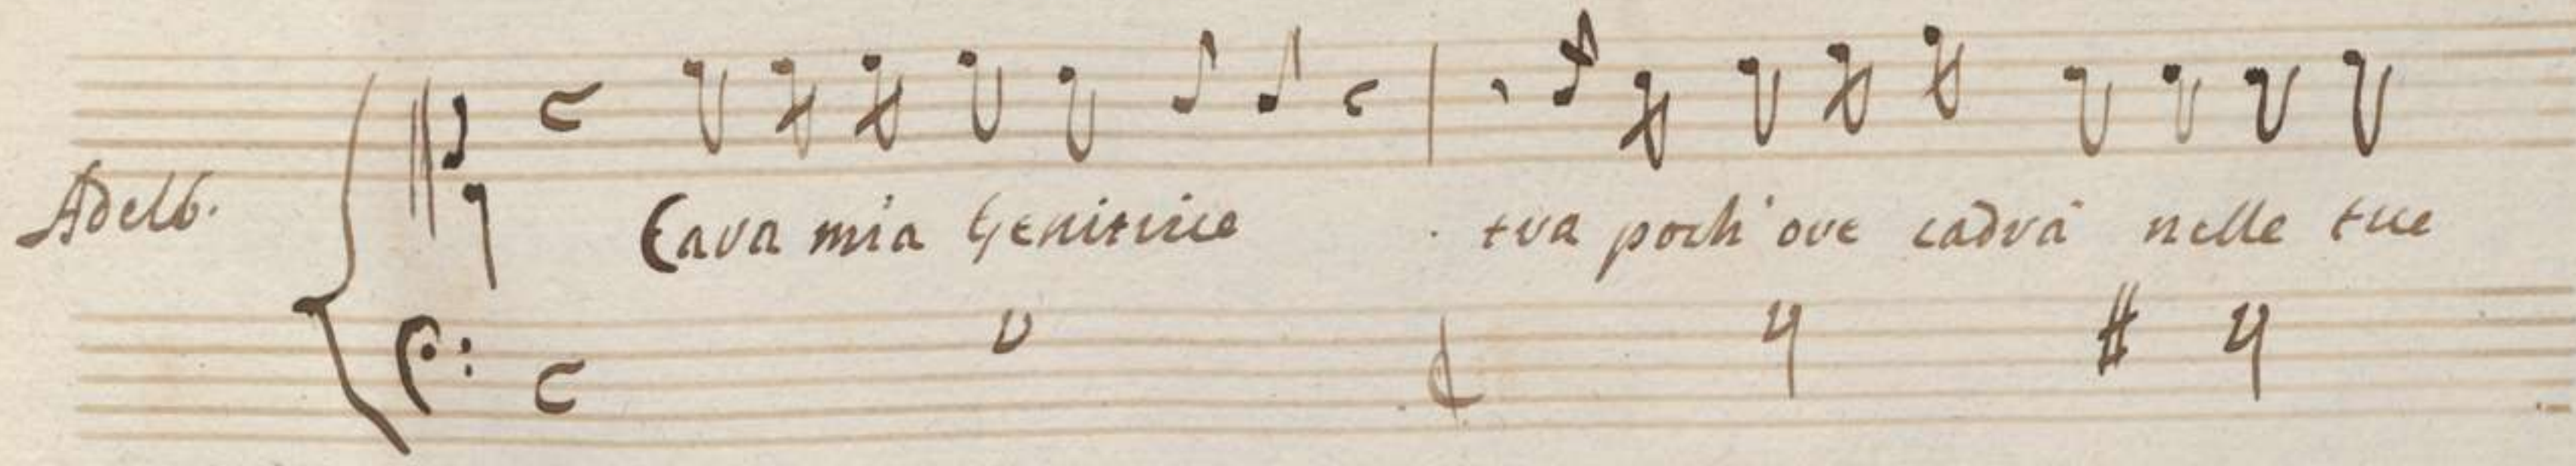 Adelb.
Cara mia Genitrice tra poch'ore cadrà nelle tue